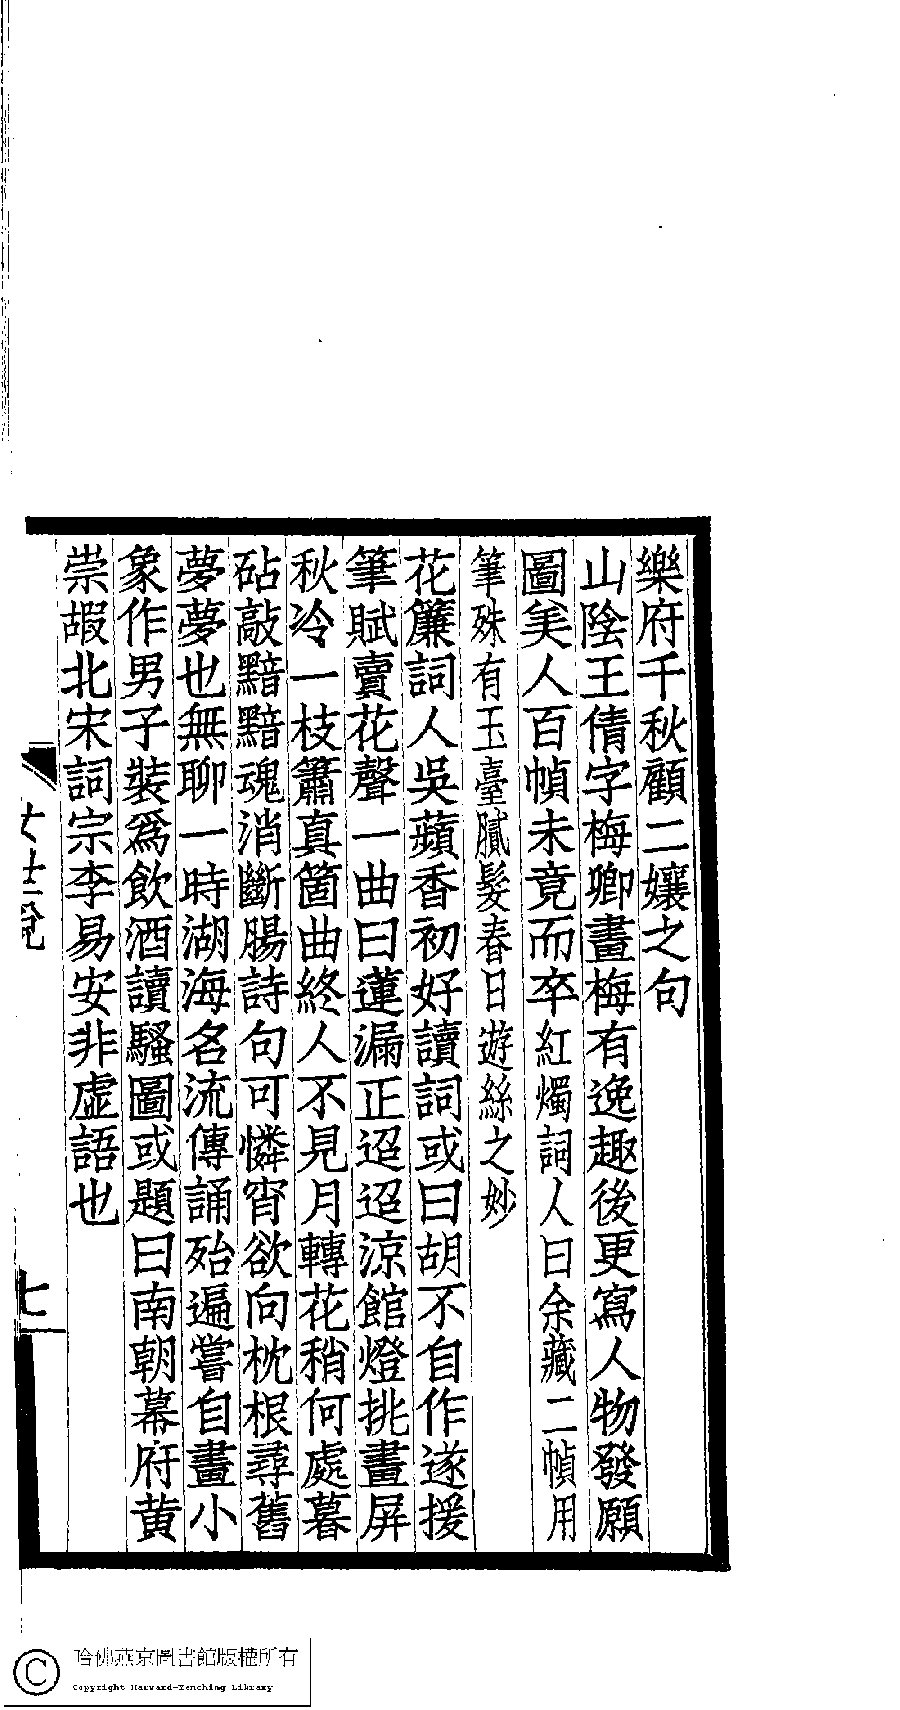 樂府千秋顧二孃之句
山陰王倩字梅卿畫梅有逸趣後更寫人物發願
圖美人百幀未竟而卒紅燭詞人曰余藏二幀用
筆殊有玉臺膩髮春日遊絲之妙
花簾詞人吳蘋香初好讀詞或曰胡不自作遂援
筆賦賣花聲一曲曰蓮漏正迢迢涼館燈挑畫屏
秋冷一枝簫真箇曲終人不見月轉花稍何處暮
砧敲黯黯魂消斷腸詩句可憐宵欲向枕根尋舊
夢夢也無聊一時湖海名流傳誦殆遍嘗自畫小
象作男子裝爲飲酒讀騷圖或題曰南朝幕府黄
崇嘏北宋詞宗李易安非虛語也
女世說
七
哈佛燕京圖書館版權所有
Copyright Harvard-Yenching Library